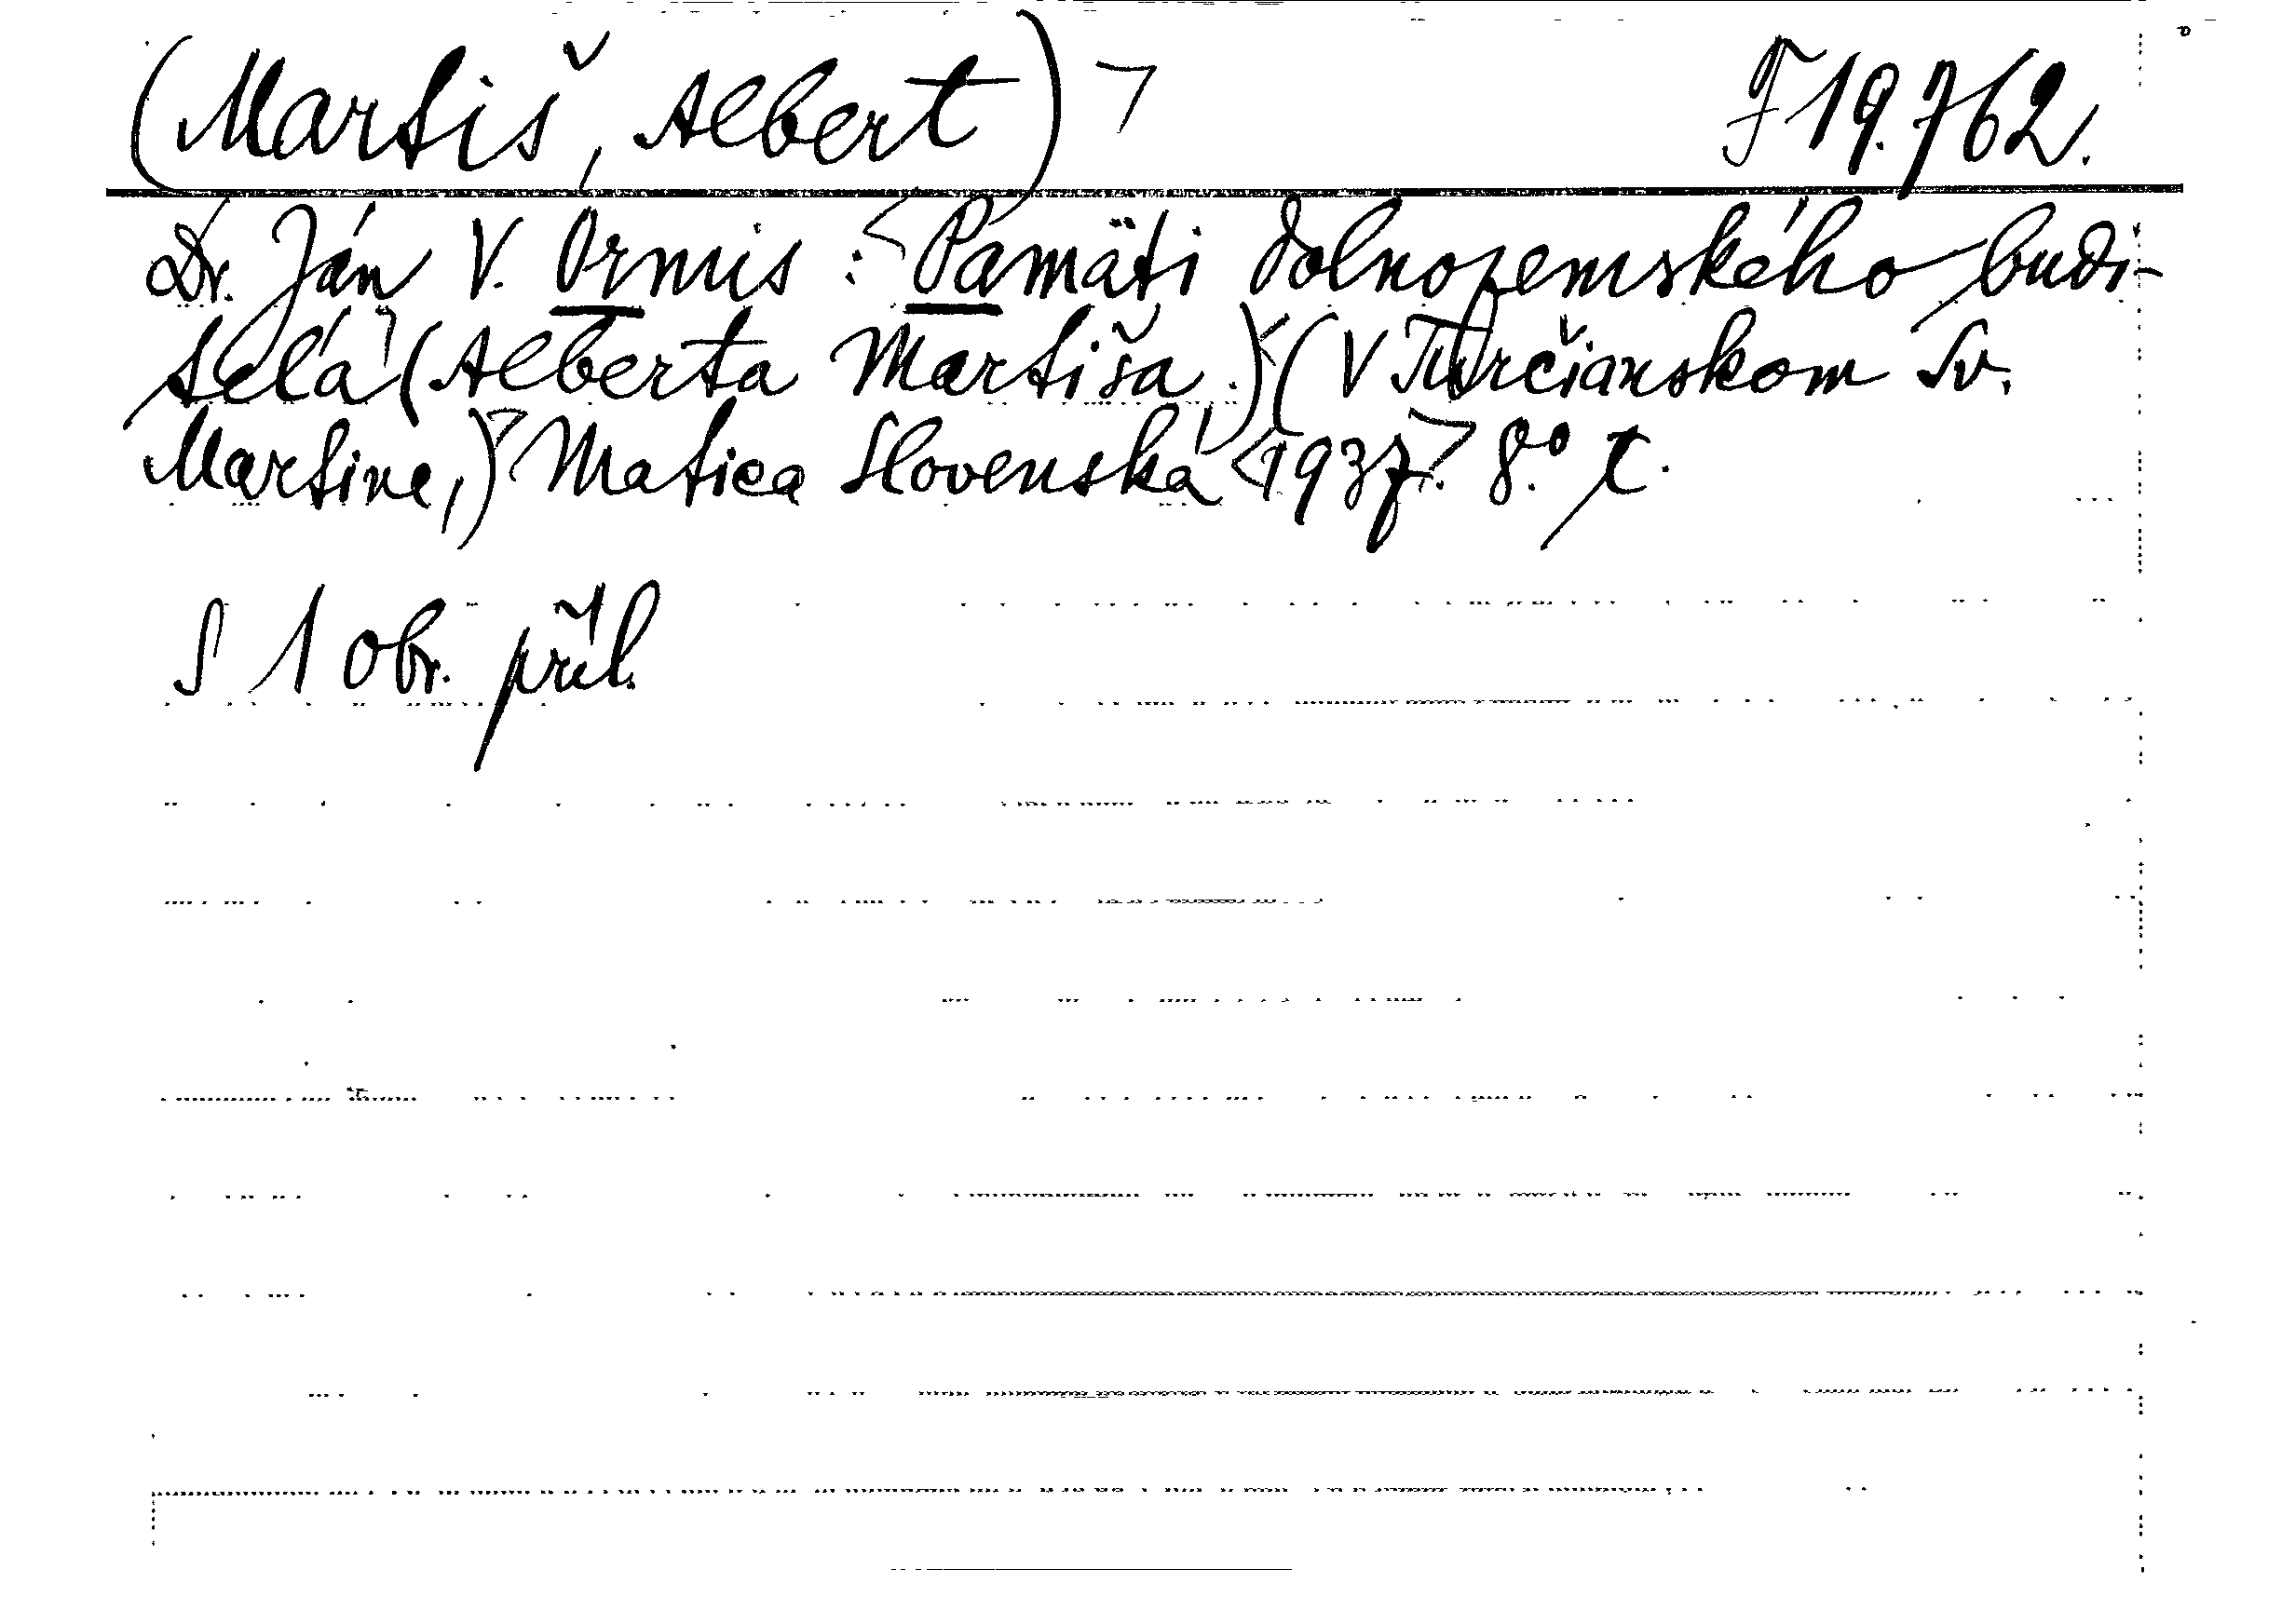 (Martiš, Albert) F 19.762.
Dr. Ján V. Ormis: Pamäti dolnozemského budi-
telá (Alberta Martiša.) (V Turčianskom Sv.
Martine,) Matica Slovenská, 1937. 8.° t.
S 1 obr. příl.